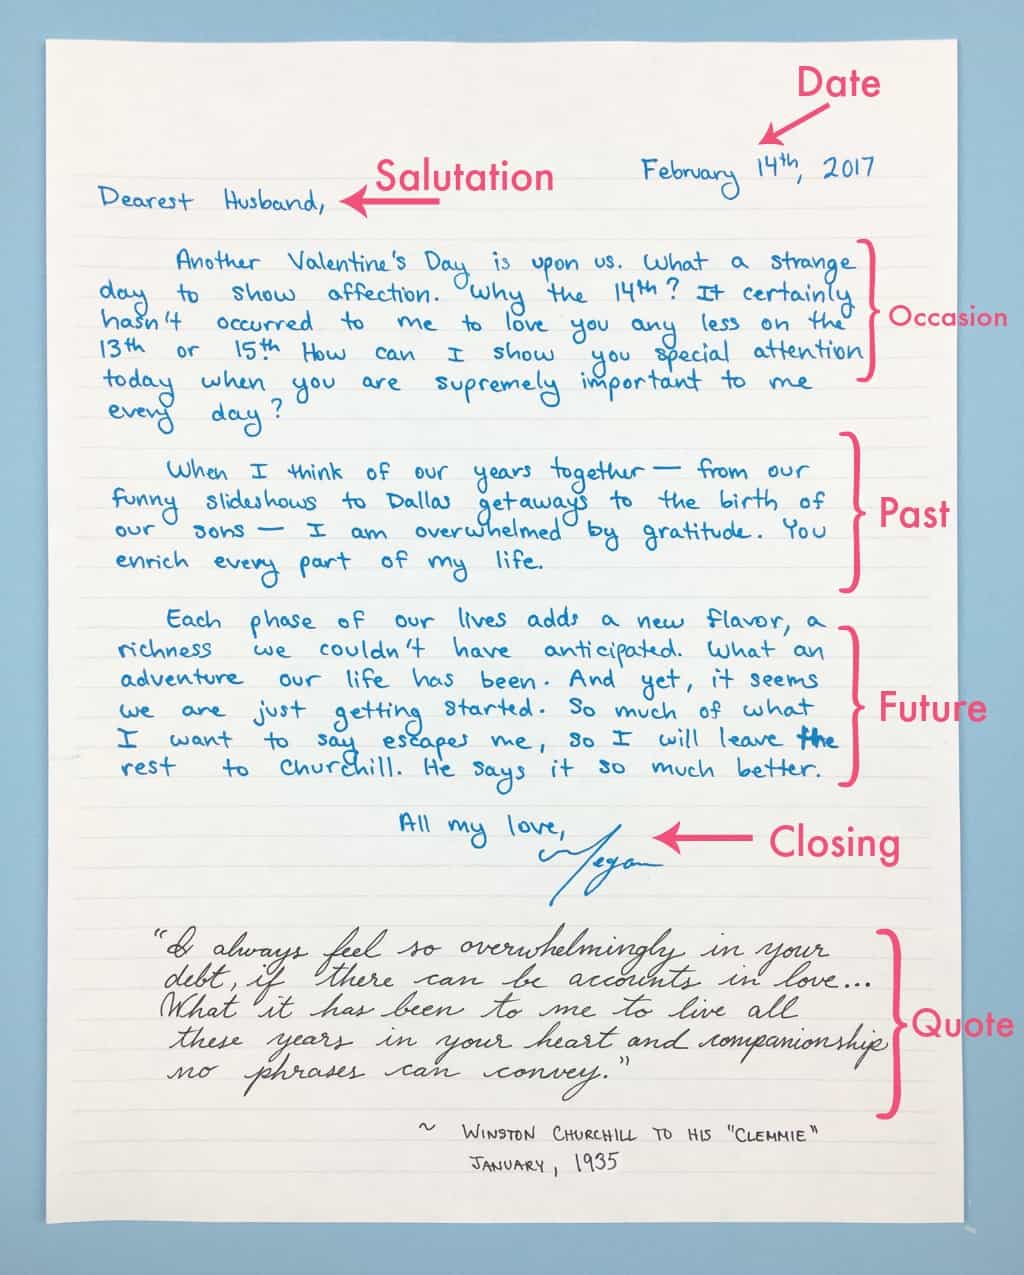 Date
February 14th, 2017
Salutation
Dearest Husband,
Another Valentine's Day is upon us. What a strange
day to show affection. Why the 14th? It certainly
hasn't occurred to me to love you any less on the
13th or 15th How can I show you special attention
today when you are supremely important to me
every day?
Occasion
When I think of our years together — from our
funny slideshows to Dallas getaways to the birth of
our sons — I am overwhelmed by gratitude. You
enrich every part of my life.
Past
Each phase of our lives adds a new flavor, a
richness we couldn't have anticipated. What an
adventure our life has been. And yet, it seems
we are just getting started. So much of what
I want to say escapes me, so I will leave the
rest to Churchill. He says it so much better.
Future
All my love,
Megan
Closing
"I always feel so overwhelmingly in your
debt, if there can be accounts in love...
What it has been to me to live all
these years in your heart and companionship
no phrases can convey."
Quote
~ WINSTON CHURCHILL TO HIS "CLEMMIE"
JANUARY, 1935